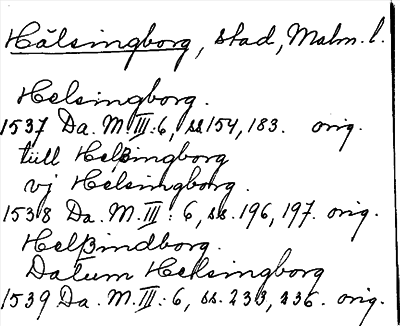 Hälsingborg, stad, Malm. l.
Helsingborg.
1537 Da. M. III: 6, ss 154, 183. orig.
tiill Helßingborg
vj Helsingborg.
1538 Da. M. III: 6, ss. 196, 197. orig.
Helßindborg.
Datum Helsingborg
1539 Da. M. III: 6, ss. 233, 236. orig.